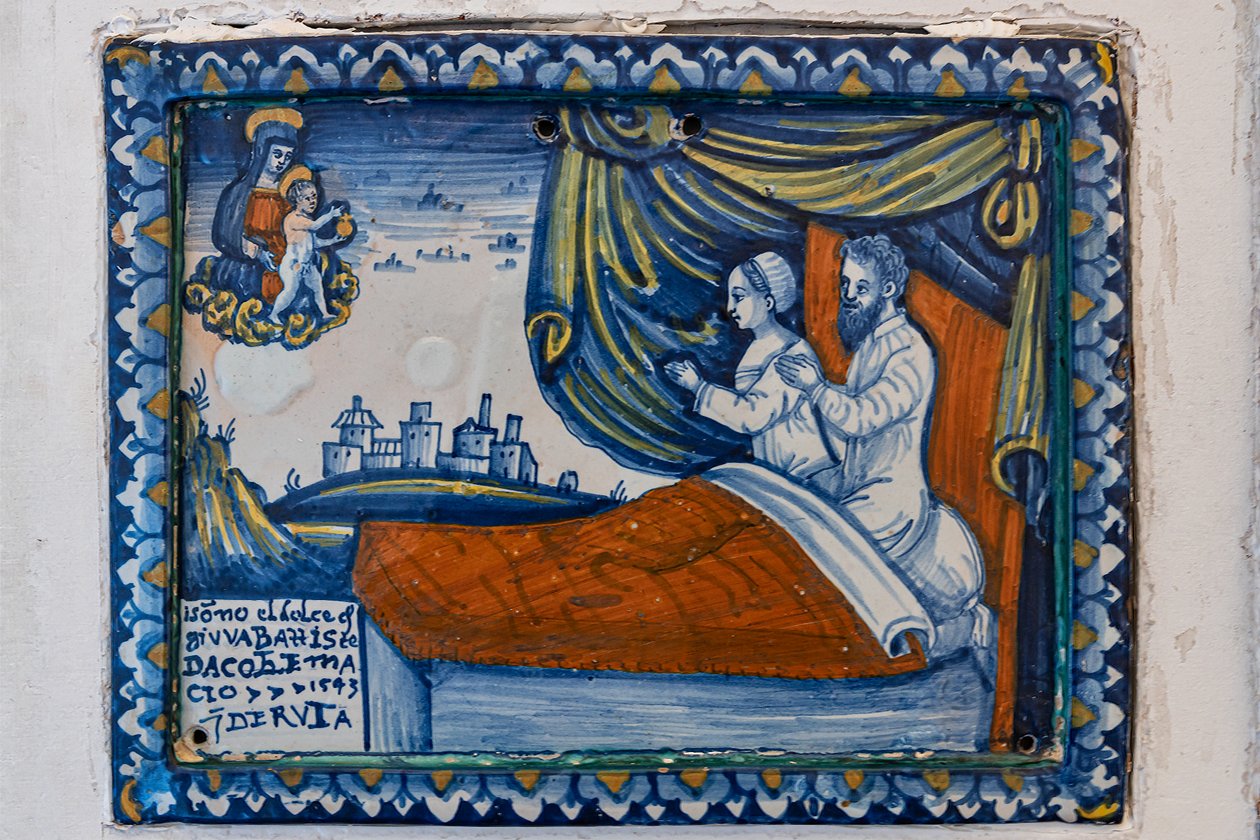 isōno eldolce q
giVVABAttiste
DACOLEMA
CIO > > > 1543
ī DERVTA